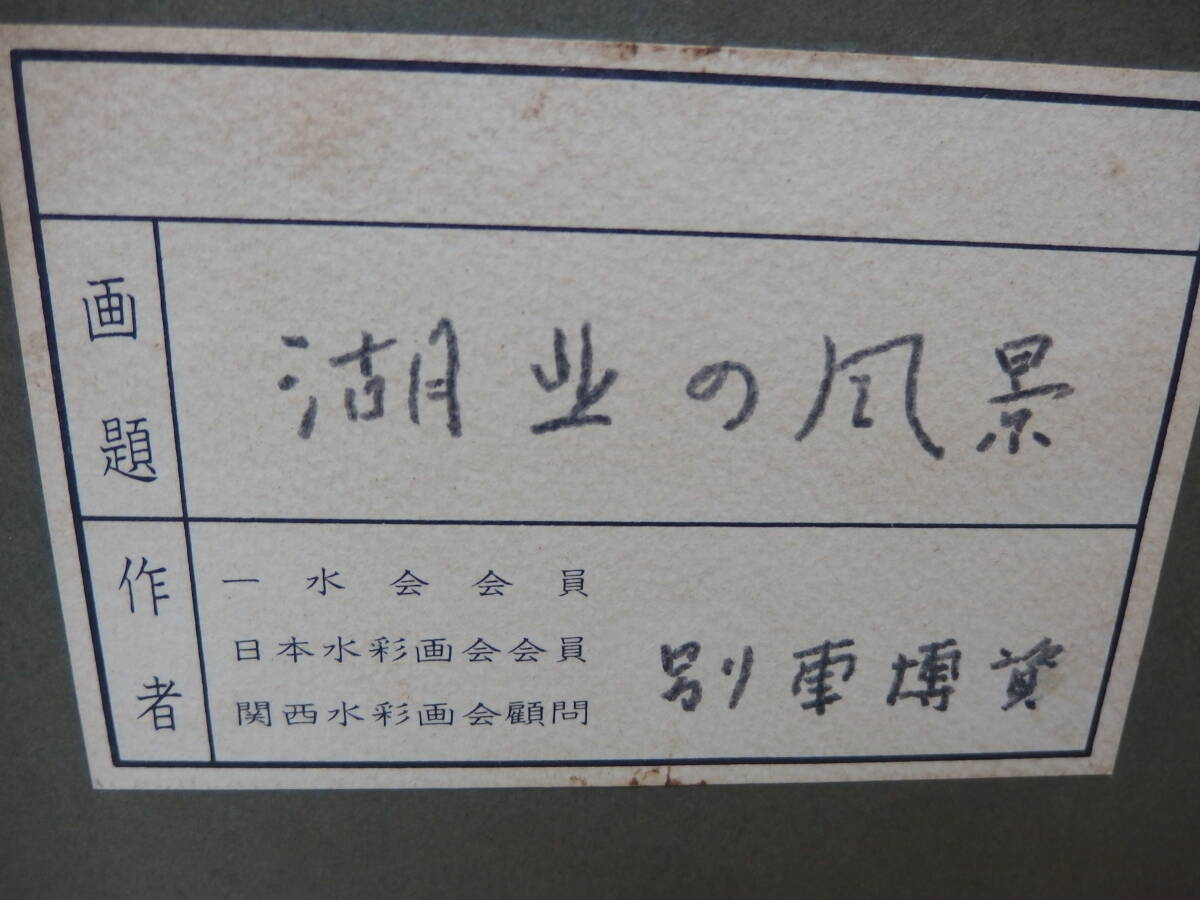 画題
湖北の風景
作者
一水会会員
日本水彩画会会員
関西水彩画会顧問
別車博資